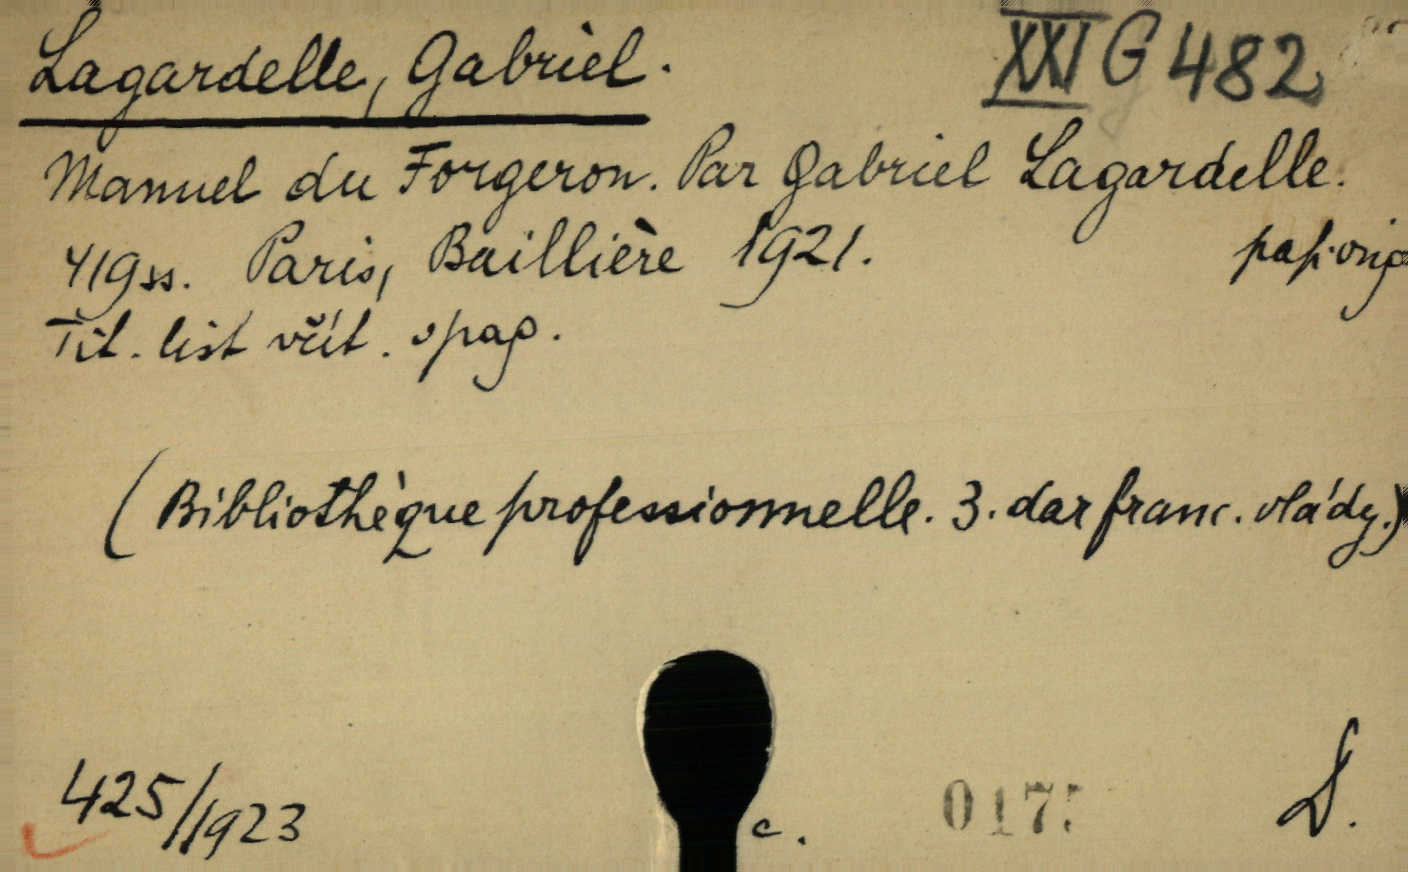 Lagardelle, Gabriel.
XXI G 482
Manuel du Forgeron. Par Gabriel Lagardelle.
419 ss. Paris, Baillière 1921. pap. orig
Tit. list včít. v pag.
(Bibliothèque professionnelle. 3. dar franc. vlády.)
425/1923
c.
017
D.